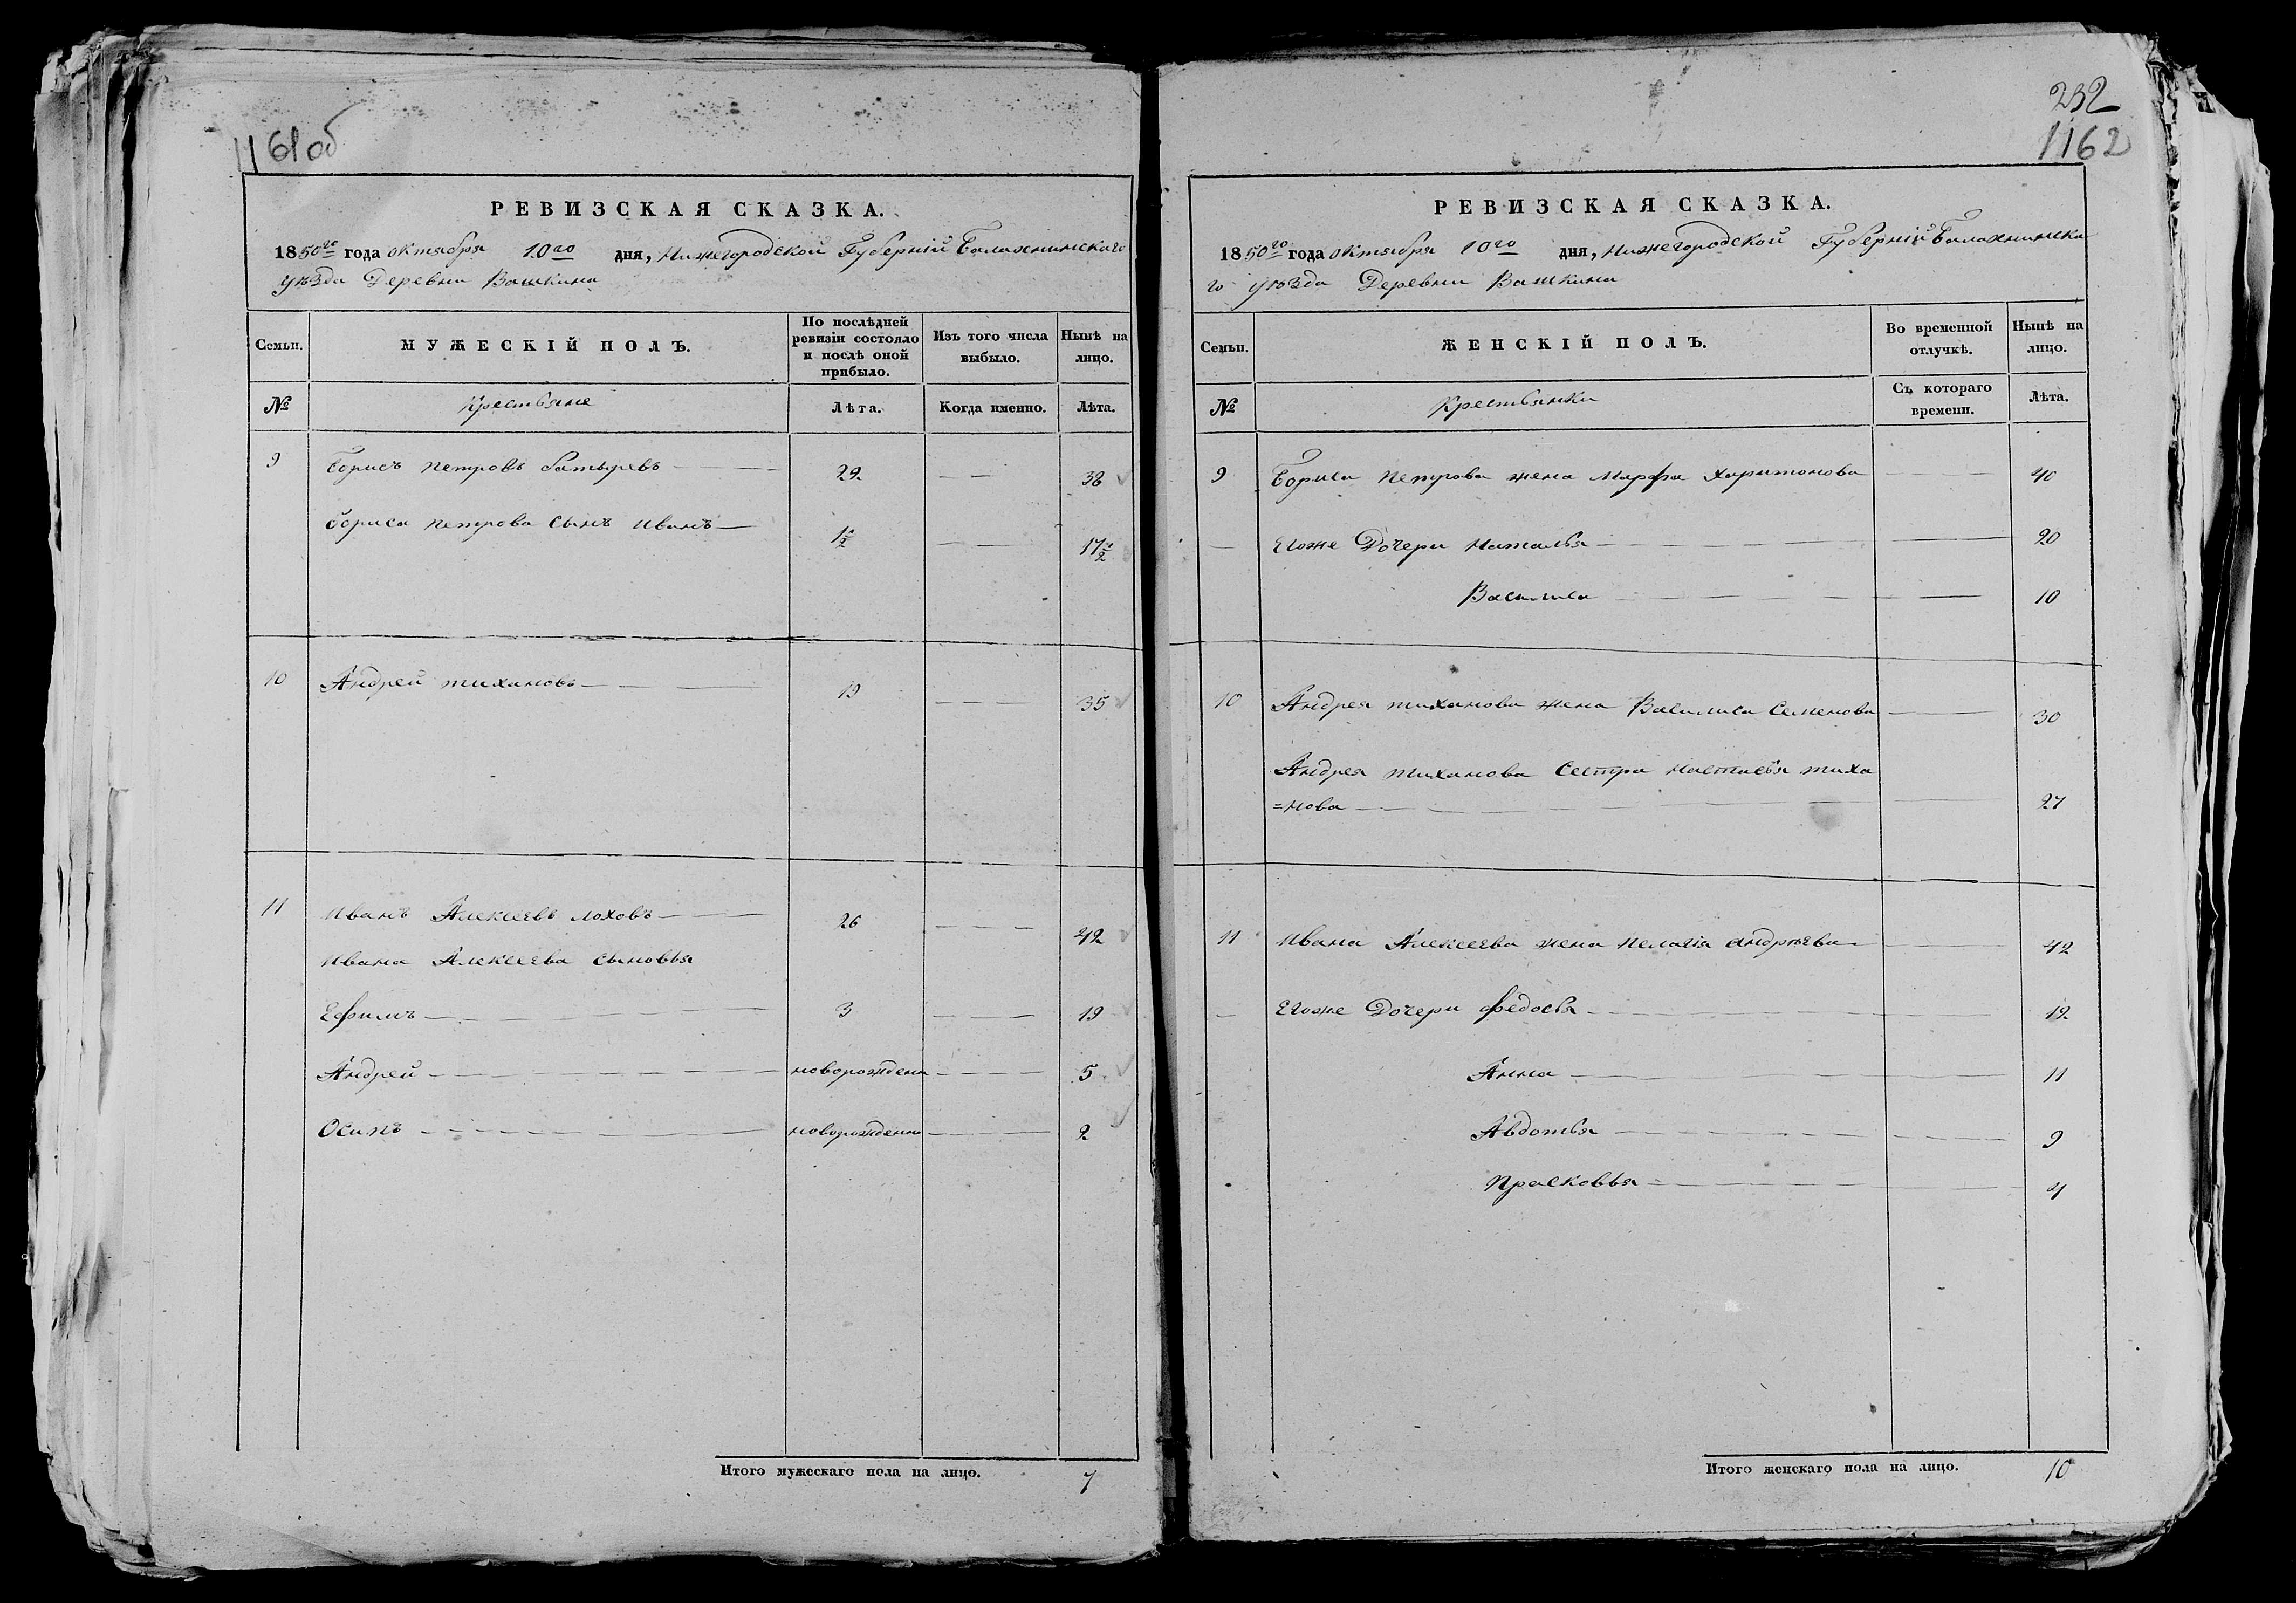 1161об
РЕВИЗСКАЯ СКАЗКА.
1850го года октября 10го дня, Нижегородской Губерніи Балахнинскаго
уѣзда Деревни Вашкина
Семьи. МУЖЕСКІЙ ПОЛЪ. По послѣдней ревизіи состояло и послѣ оной прибыло. Изъ того числа выбыло. Нынѣ на лицо.
№ Крестьяне Лѣта. Когда именно. Лѣта.
9 Борисъ Петровъ Батыревъ 22 38
Бориса Петрова сынъ Иванъ 1½ 17½
10 Андрей Тихановъ 19 35
11 Иванъ Алексеевъ Лоховъ 26 42
Ивана Алексеева сыновья
Ефимъ 3 19
Андрей новорожденн 5
Осипъ новорожденн 2
Итого мужескаго пола на лицо. 7
232
1162
РЕВИЗСКАЯ СКАЗКА.
1850го года октября 10го дня, Нижегородской Губерніи Балахнинска
го уѣзда Деревни Вашкина
Семьи. ЖЕНСКІЙ ПОЛЪ. Во временной отлучкѣ. Нынѣ на лицо.
№ Крестьянки Съ котораго времени. Лѣта.
9 Бориса Петрова жена Марфа Харитонова 40
Егоже Дочери Наталья 20
Василиса 10
10 Андрея Тиханова жена Василиса Семенова 30
Андрея Тиханова Сестра Настасья Тиха
=нова 27
11 Ивана Алексеева жена Пелагія Андрѣева 42
Егоже Дочери Федосья 12
Анна 11
Авдотья 9
Прасковья 4
Итого женскаго пола на лицо. 10